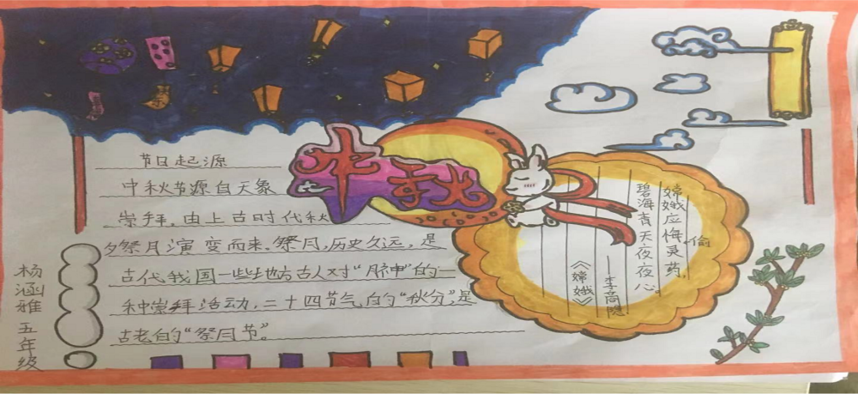 中秋
节日起源
中秋节源自天象
崇拜,由上古时代秋
夕祭月演变而来。祭月,历史久远,是
古代我国一些地方古人对“月神”的一
种崇拜活动,二十四节气的“秋分”,是
古老的“祭月节”。
嫦娥应悔偷灵药,
碧海青天夜夜心。
——李商隐
《嫦娥》
杨涵雅五年级